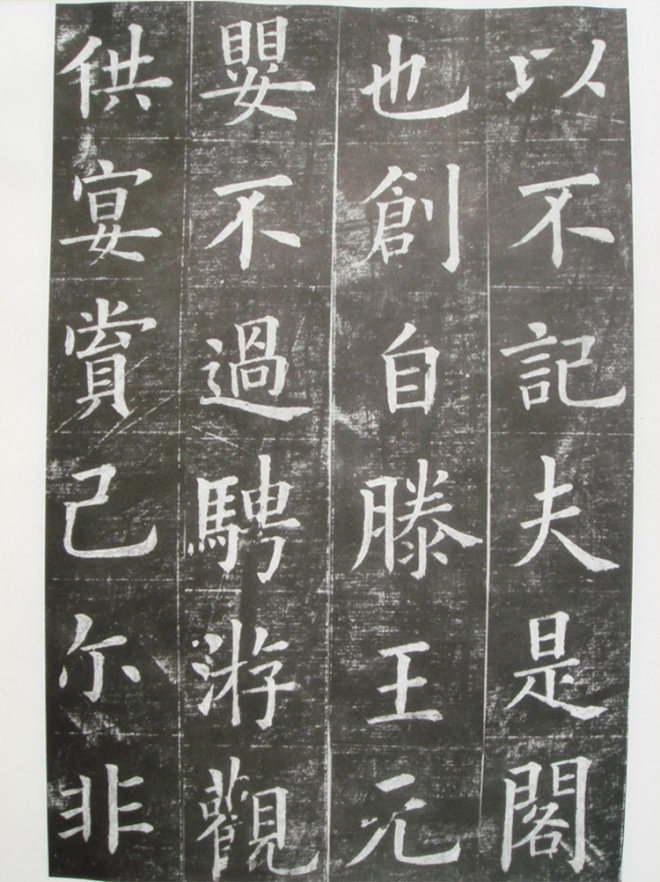 以不記夫是閣
也創自滕王元
嬰不過騁游觀
供宴賞己尒非